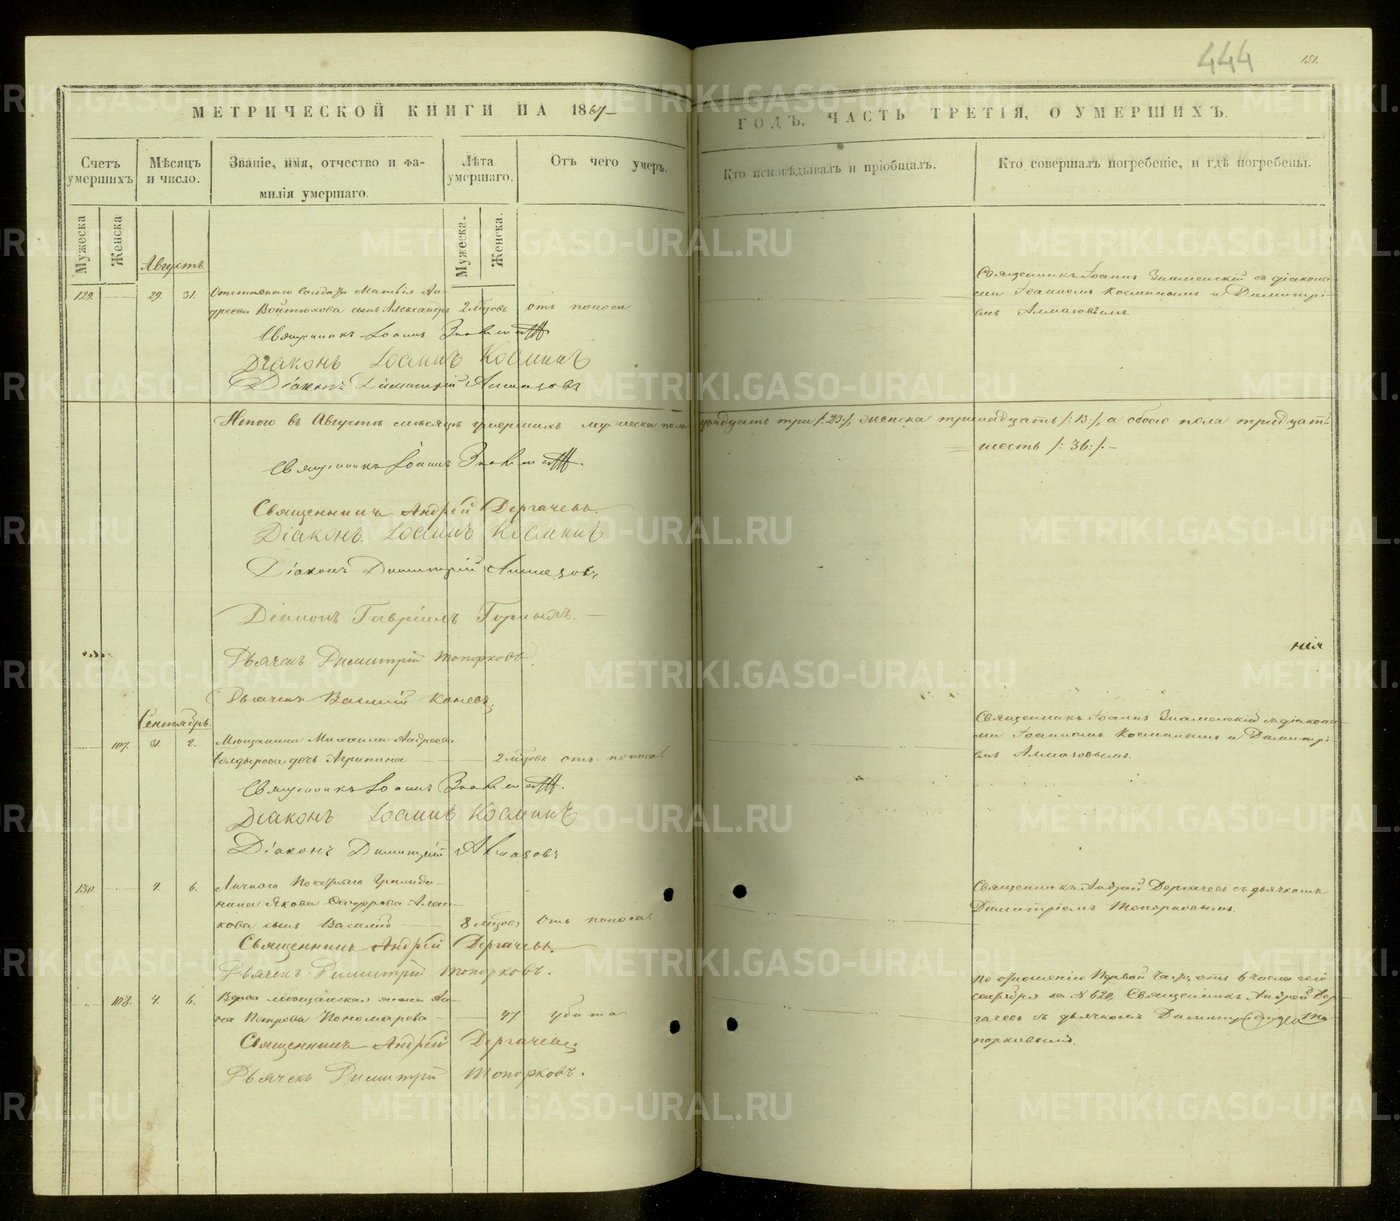 444
151.
МЕТРИЧЕСКОЙ КНИГИ НА 1867
ГОДЪ, ЧАСТЬ ТРЕТІЯ, О УМЕРШИХЪ.
Счетъ умершихъ.
Мѣсяцъ и число.
Званіе, имя, отчество и фа-
милія умершаго.
Лѣта умершаго.
Отъ чего умеръ.
Кто исповѣдывалъ и пріобщалъ.
Кто совершалъ погребеніе, и гдѣ погребены.
Мужеска
Женска
Мужеска.
Женска.
Августъ.
129. 29. 31. Отставнаго солдата Матвѣя Ан-
дреева Войтюхова сынъ Александръ 2 мѣсяц. отъ поноса
Священникъ Іоаннъ Знаменскій съ діакона-
ми Іоанномъ Косминымъ и Димитрі-
емъ Алмазовымъ.
Священникъ Іоаннъ
Діаконъ Іоаннъ Косминъ
Діаконъ Димитрій Алмазовъ
Итого въ Августѣ мѣсяцѣ умершихъ мужеска пола двадцать три /:23:/, женска тринадцать /:13:/, а обоего пола тридцать
шесть /:36:/.
Священникъ Іоаннъ
Священникъ Андрей Дергачевъ.
Діаконъ Іоаннъ Косминъ
Діаконъ Димитрій Алмазовъ
Діаконъ Гавріилъ
Дьячекъ Димитрій Топорковъ.
нія
Дьячекъ Василій Коневъ
Сентябрь.
107. 31. 2. Мѣщанина Михаила Андреева
Болдырева дочь Агрипина 2 мѣсяц. отъ поноса.
Священникъ Іоаннъ Знаменскій съ діакона-
ми Іоанномъ Косминымъ и Димитрі-
емъ Алмазовымъ.
Священникъ Іоаннъ
Діаконъ Іоаннъ Косминъ
Діаконъ Димитрій Алмазовъ
130. 4. 6. Личнаго Почетнаго Гражда-
нина Якова Ѳедорова
сынъ Василій 8 мѣсяц. Отъ поноса.
Священникъ Андрей Дергачевъ съ дьячкомъ
Димитріемъ Топорковымъ.
Священникъ Андрей Дергачевъ.
Дьячекъ Димитрій Топорковъ.
108. 4. 6. Вдова мѣщанская жена Ан-
на Петрова Пономарева 47. убита
По отношенію Первой Части отъ 6 числа сего
сентября за № 620, Священникъ Андрей Дер-
гачевъ съ дьячкомъ Димитріемъ То-
порковымъ.
Священникъ Андрей Дергачевъ
Дьячекъ Димитрій Топорковъ.
METRIKI.GASO-URAL.RU